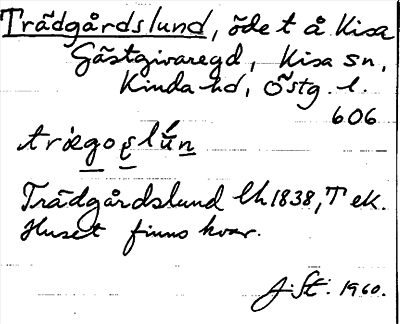 Trädgårdslund, öde t å Kisa
Gästgivaregd, Kisa sn,
Kinda hd, Östg. l.
606
Trädgårdslund lh 1838, T ek.
Huset finns kvar.
J. St. 1960.